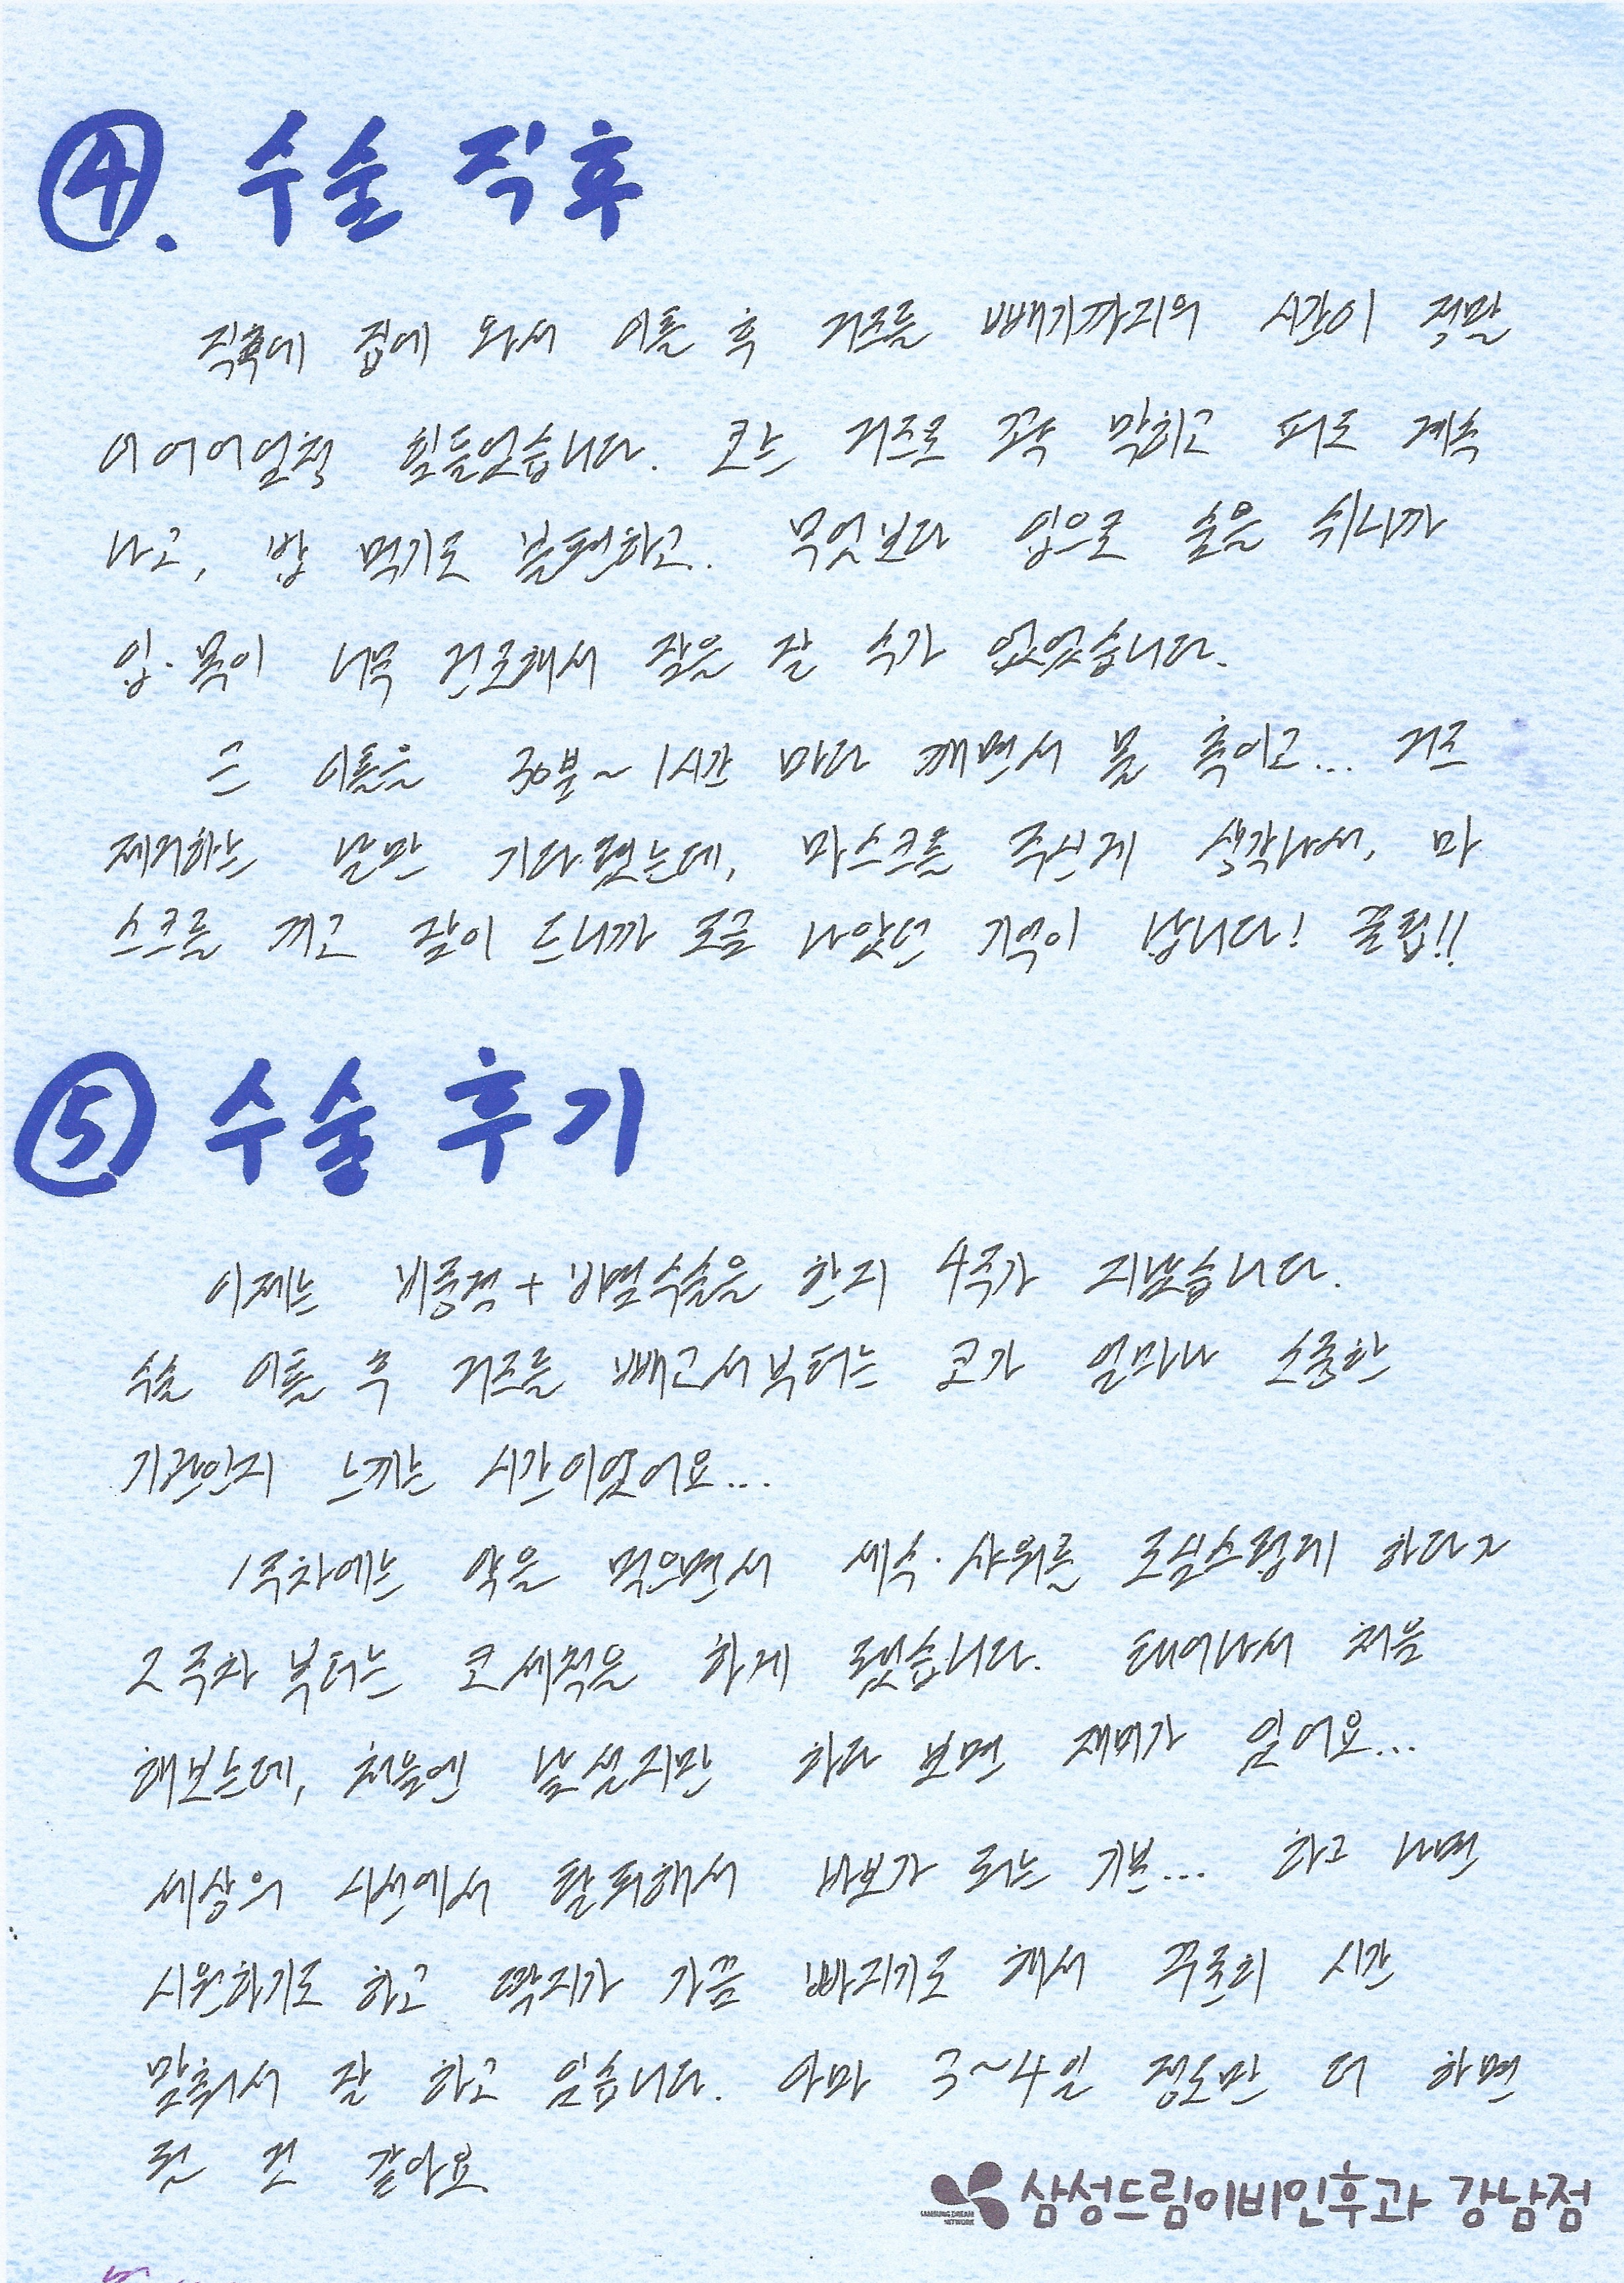 ④. 수술 직후
직후에 집에 와서 이틀 후 거즈를 빼기까지의 시간이 정말
어어어엄청 힘들었습니다. 코는 거즈로 꽉 막히고 피도 계속
나고, 밥 먹기도 불편하고. 무엇보다 입으로 숨을 쉬니까
입·목이 너무 건조해서 잠을 잘 수가 없었습니다.
그 이틀은 30분~1시간 마다 깨면서 물 축이고... 거즈
제거하는 날만 기다렸는데, 마스크를 주신게 생각나서, 마
스크를 끼고 잠이 드니까 조금 나았던 기억이 납니다! 꿀팁!!
⑤ 수술 후기
이제는 비중격+비밸브수술을 한지 4주가 지났습니다.
수술 이틀 후 거즈를 빼고서부터는 코가 얼마나 소중한
기관인지 느끼는 시간이었어요...
1주차에는 약을 먹으면서 세수·샤워를 조심스럽게 하다가
2주차 부터는 코세척을 하게 됐습니다. 태어나서 처음
해보는데, 처음엔 낯설지만 하다 보면 재미가 있어요...
세상의 시선에서 탈피해서 바보가 되는 기분... 하고 나면
시원하기도 하고 딱지가 가끔 빠지기도 해서 꾸준히 시간
맞춰서 잘 하고 있습니다. 아마 3~4일 정도만 더 하면
될 것 같아요
삼성드림이비인후과 강남점
SAMSUNG DREAM
NETWORK